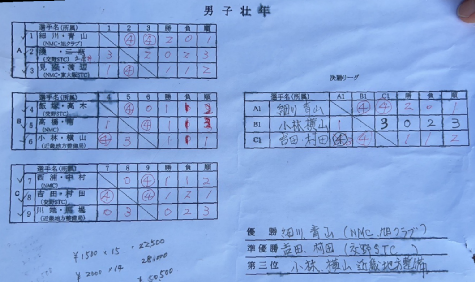 男子壮年
選手名(所属) 1 2 3 勝 負 順
A
1 細川・青山 (NMC・旭クラブ) ④ ④ 2 0 1
2 (交野STC) 3 2 0 2 3
3 1 ④ 1 1 2
選手名(所属) 4 5 6 勝 負 順
4 飯塚・高木 (交野STC) ④ 0 1 1
5 (NMC) 1 ④ 1 1 3
6 小林・横山 (近畿地方整備局) ④ 1 1 1
選手名(所属) 7 8 9 勝 負 順
C
7 西浦・中村 (NMC) 0 ④ 1 1 2
8 吉田・村田 (交野STC) ④ ④ 2 1
9 (近畿地方整備局) 0 3 0 2 3
決勝リーグ
選手名(所属) A1 B1 C1 勝 負 順
A1 細川 青山 ④ ④ 2 0 1
B1 小林 横山 1 3 0 2 3
C1 吉田 村田 ④ 1 1 2
優勝 細川 青山 (NMC, 旭クラブ)
準優勝 吉田 村田 (交野STC)
第三位 小林、横山 近畿地方整備
¥1500 × 15 22500
¥2000 × 14 28000
¥50,500